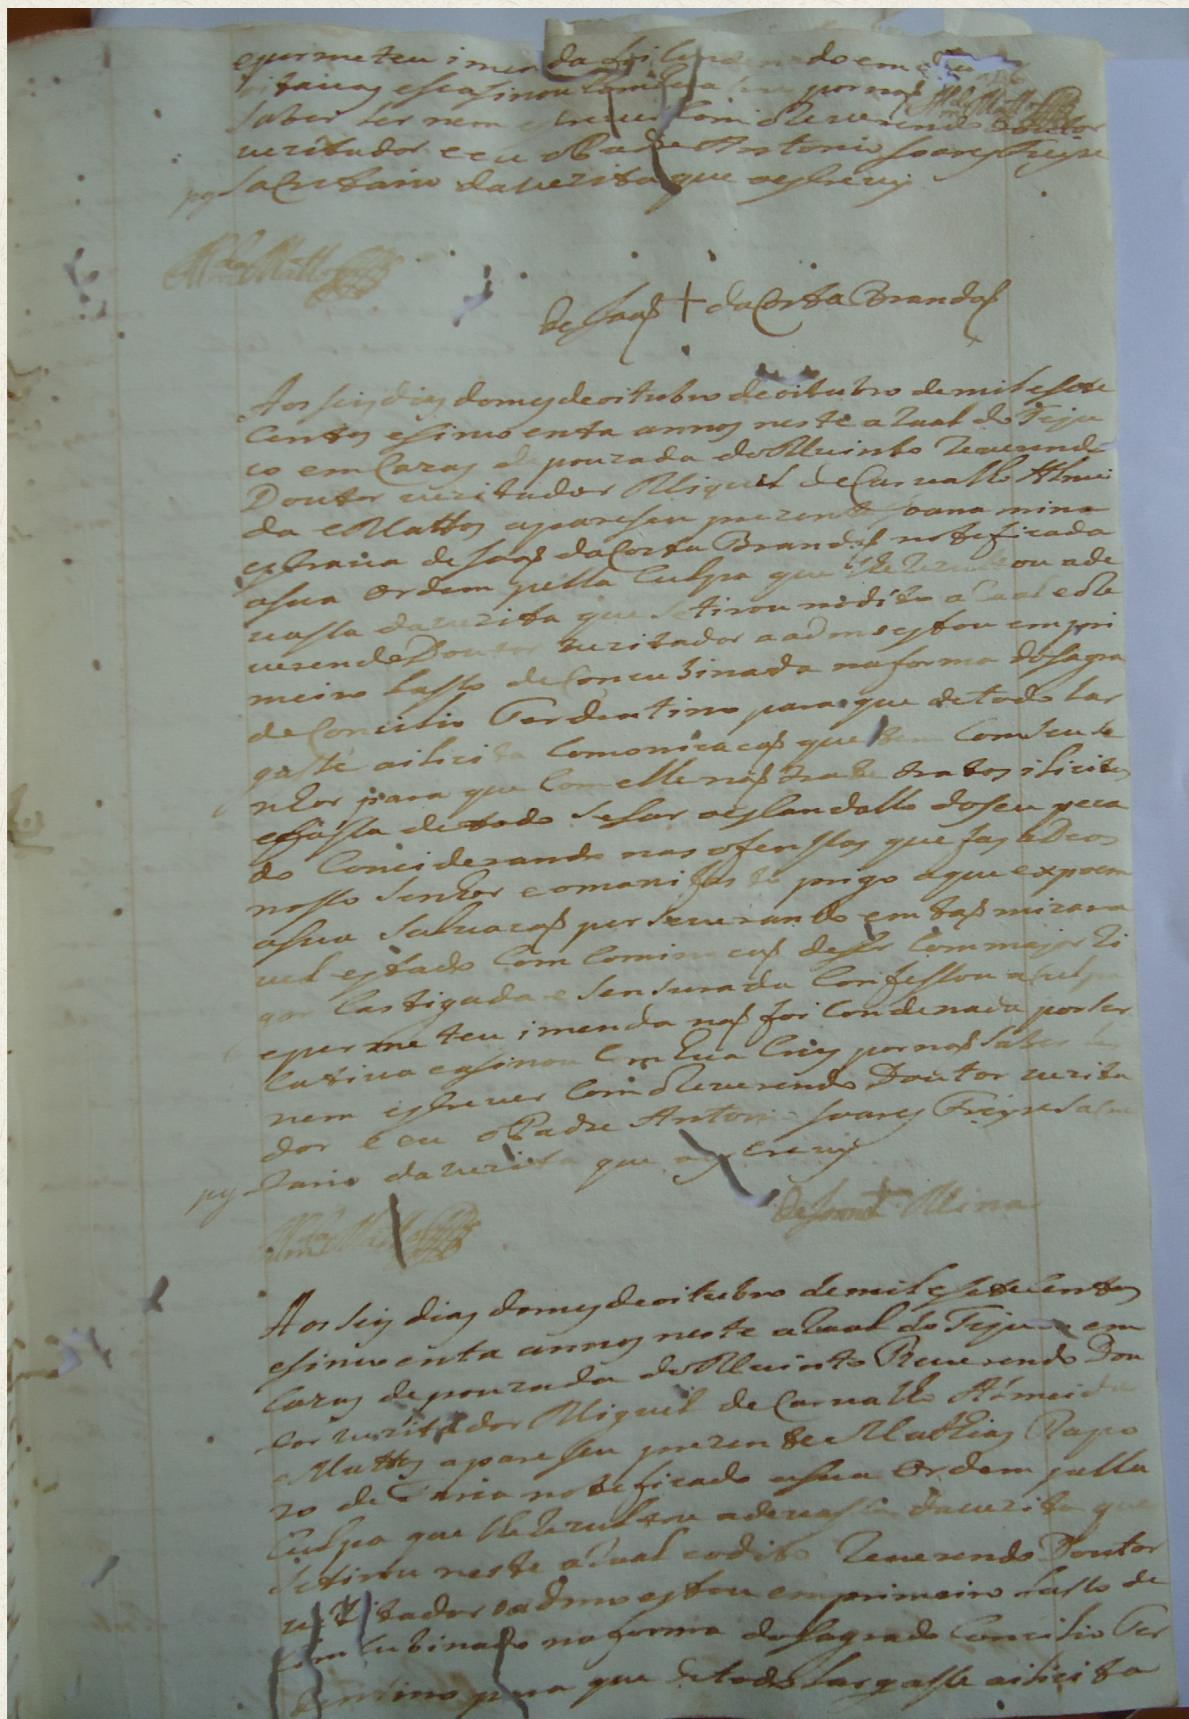 epurmeteu imenda foi Condenado em
oitavas easinou Com hũa por naõ
saber ler nem escrever Com o Reverendo Doutor
vezitador e eu o Padre Antonio Soares Freyre
pg sacretario da vezita que o escrevy
Almda Mattos
De Joaõ + da Costa Brandaõ
Aos seis dias do mes de oitubro de oitubro de mil e sete
Centos e sinco enta annos neste aRaal do Teju
co em Cazas de pouzada do Muinto Reverendo
Doutor vezitador Miguel de Carvalho Almei
da e Mattos apareseu prezente Joana mina
escrava de Joaõ da Costa Brandaõ noteficada
a sua ordem pella Culpa que lhe Rezultou a de
vassa da vezita que se tirou no dito aRaal e o Re
verendo Doutor vezitador a admoestou em pri
meiro lasso de Concuzinada na forma do Sagra
do Concilio Terdentino para que de todo lar
gasse a ilicita Comonicacaõ que tem Com seu se
nhor para que Com elle naõ trate tratos ilicitos
e faça de todo sesar o escandallo do seu peca
do Conciderando nas ofenssas que fas a Deos
nosso Senhor e o manifesto prigo a que expoem
a sua Salvacaõ perseverando em taõ mizara
vel estado Com Cominacaõ de ser Com major Ri
gor Castigada e sensurada Confessou a culpa
e purmeteu imenda naõ foi Condenada por ser
Cativa easinou Com hũa Crus por naõ saber ler
nem escrever Com o Reverendo Doutor vezita
dor e eu o Padre Antonio Soares Freyre sacre
pg tario da vezita que o escrevy
De Joana + Mina
Almda Mattos
Aos seis dias do mes de oitubro de mil e sete Centos
e sinco enta annos neste aRaal do Tejuco em
Cazas de pouzada do Muinto Reverendo Dou
tor vezitador Miguel de Carvalho Almeida
e Mattos apareseu prezente Mathias Rapo
zo de Faria noteficado a sua ordem pella
Culpa que lhe Rezultou a devassa da vezita que
se tirou neste aRaal e o dito Reverendo Doutor
vezitador o admoestou em primeiro lasso de
Concubinado na forma do Sagrado Concilio Ter
dentino para que de todo largasse a ilicita